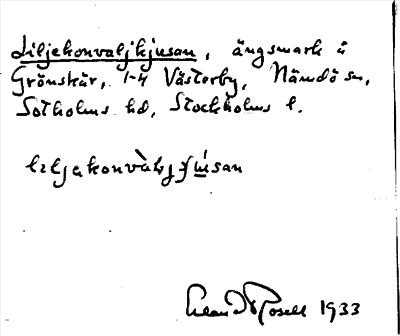 Liljekonvaljkjusan, ängsmark å
Grönskär, 1-4 Västerby, Nämdö sn,
Sotholms hd, Stockholms l.
Rosell 1933